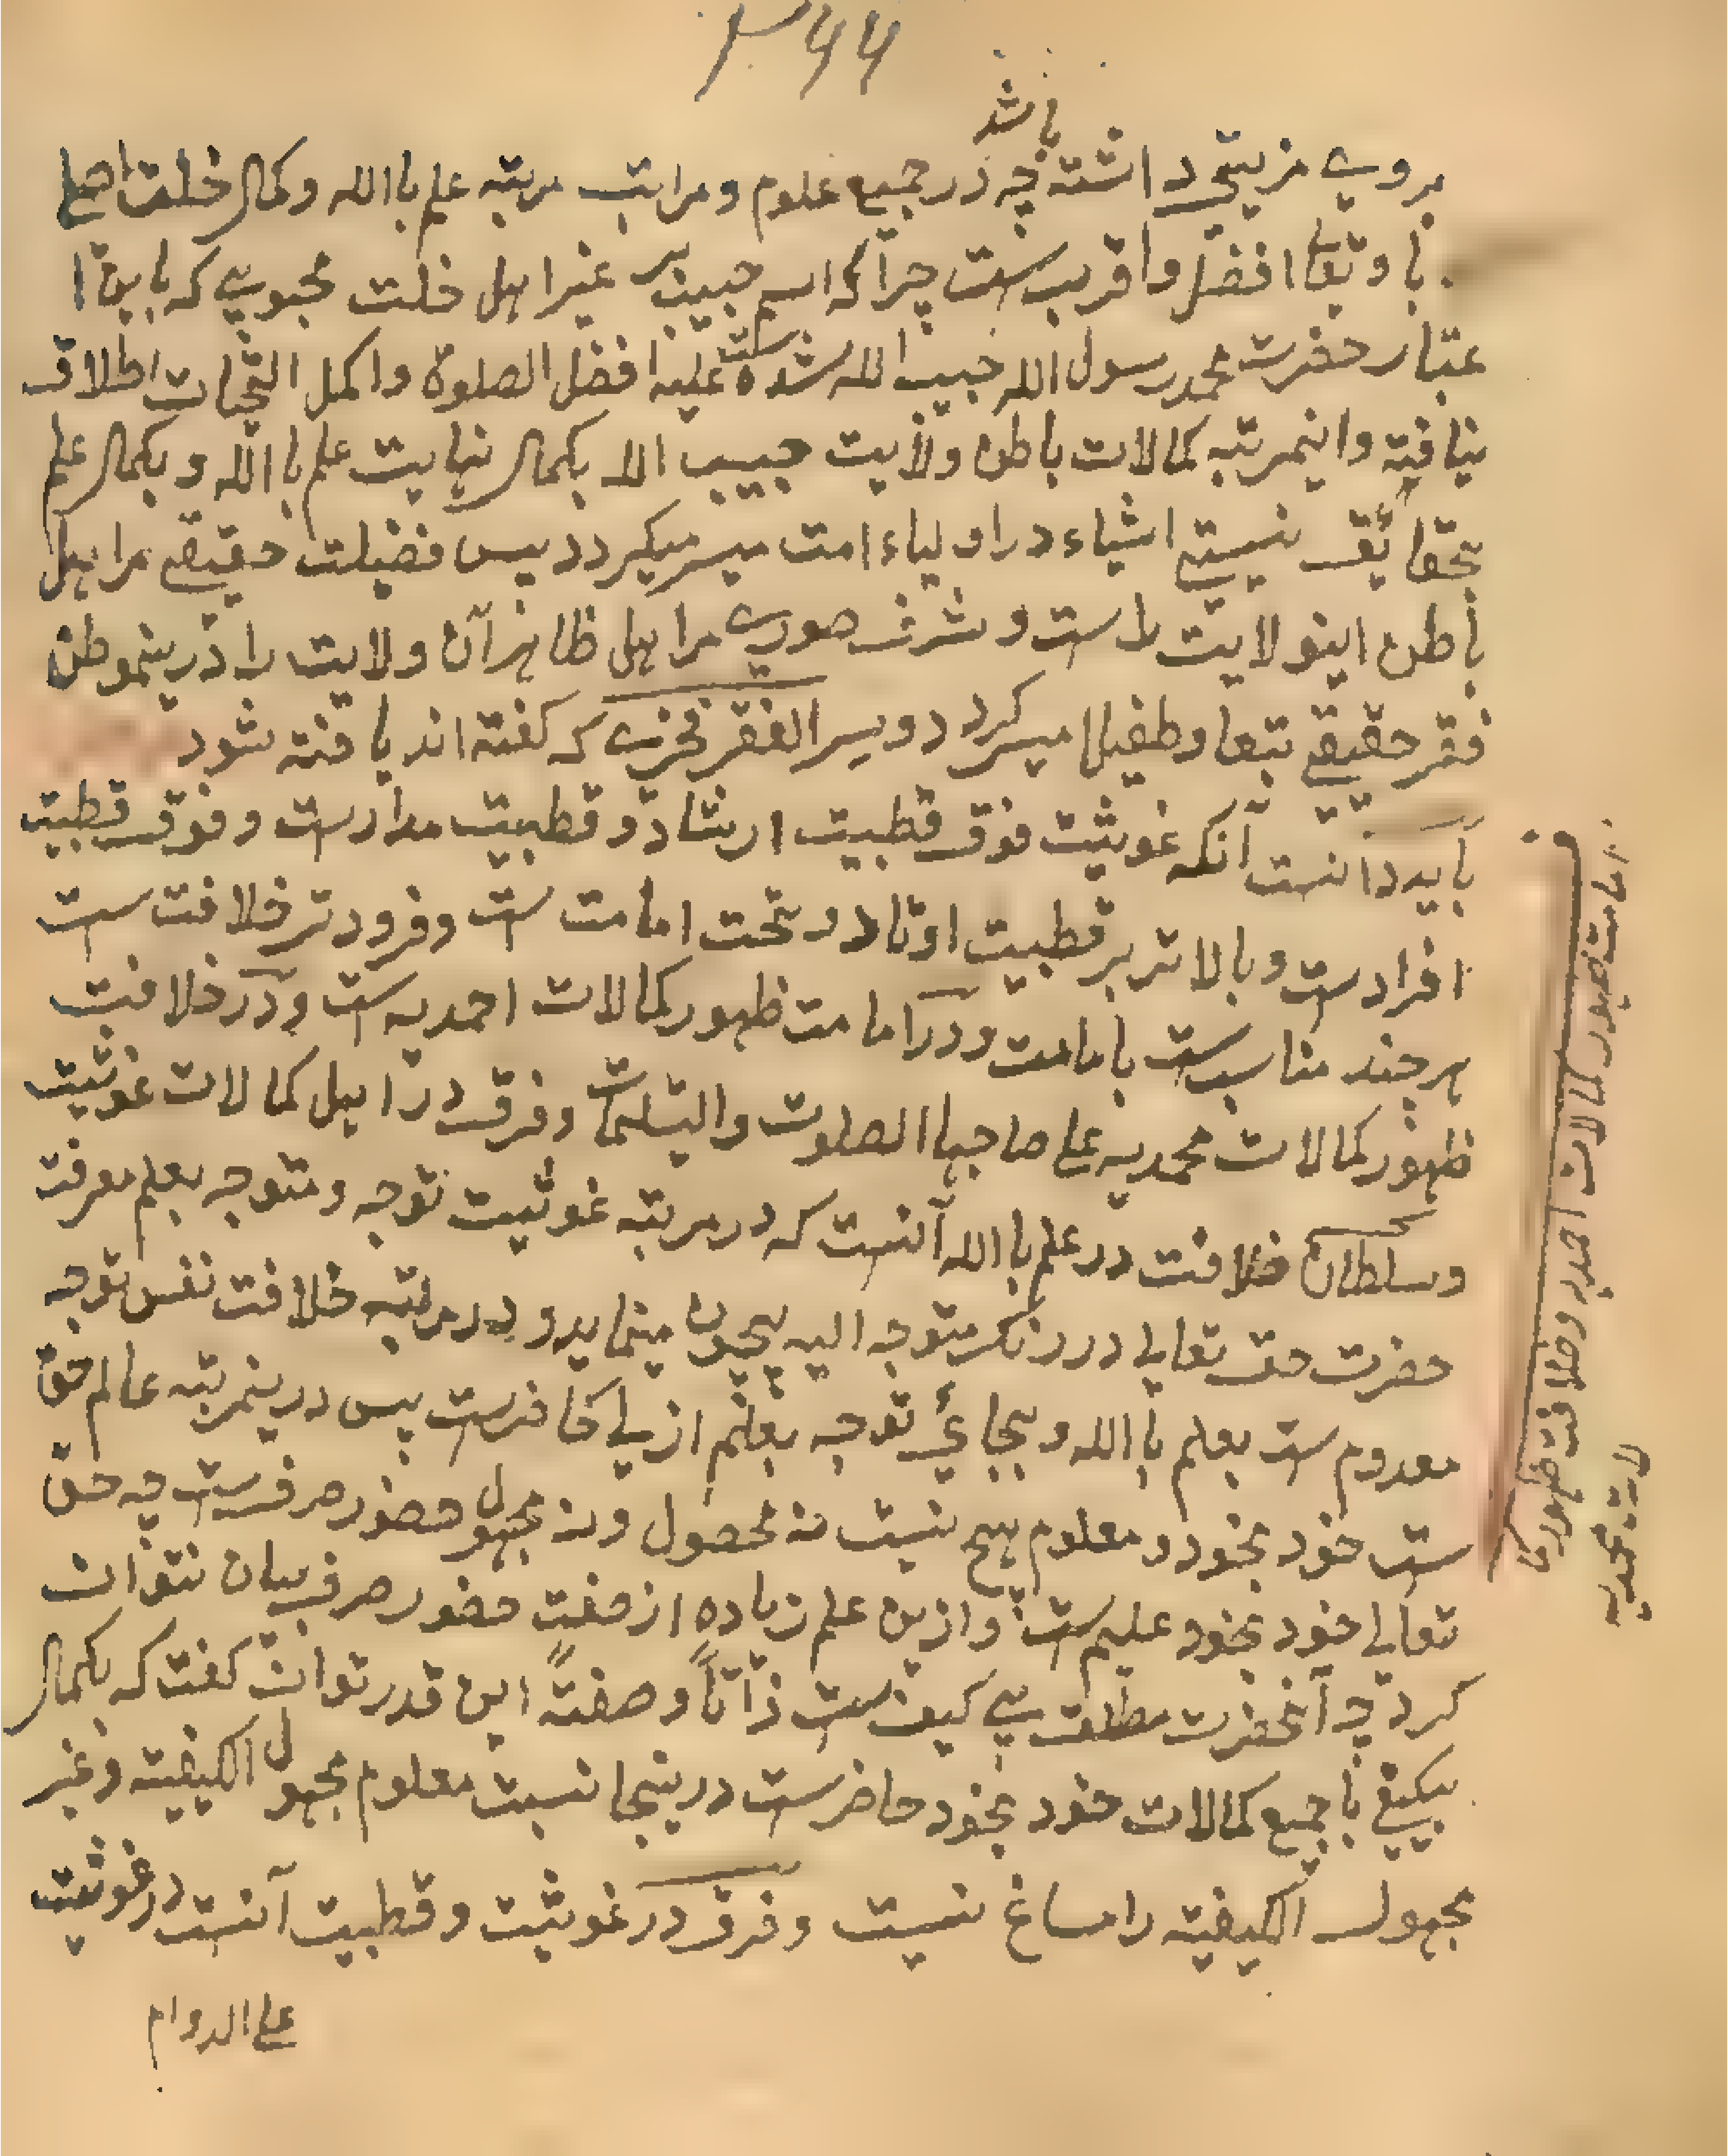 ۳۶۶
باشد
بروی مزیتی داشته چه در جمیع علوم و مراتب مرتبه علم باالله و کمال خلت اهل
با و تعا افضل و اقرب ست چرا که اسم حبیب بر غیر اهل خلت محبوبی که باین ا
عتبار حضرت محمد رسول الله حبیب الله شده ست علیه افضل الصلوة و اکمل التحیات اطلاق
نیافته و اینمرتبه کمالات باطن ولایت حبیب الله بکمال نهایت علم باالله و بکمال علم
بحقائق نیستی اشیاء در اولیاء امت میسر میکردد پس فضیلت حقیقی مر اهل
باطن اینولایت راست و شرف صوری مر اهل ظاهر آن ولایت را درینموطن
فقر حقیقی تبعا و طفیلا میسر کردد و سر الفقر فخری که کفته اند یافته شود
باید دانست آنکه غوثیت فوق قطبیت ارشاد و قطبیت مدارست و فوق قطبیت
افرادست و بالاتر بر قطبیت اوتاد و تحت امامت ست و فرودتر خلافت ست
هر چند مناسب ست بامامت و در امامت ظهور کمالات احمدیه ست و در خلافت
ظهور کمالات محمدیه علی صاحبها الصلوت والتسلیمات و فرق در اهل کمالات غوثیت
و سلطان خلافت در علم باالله آنست که در مرتبه غوثیت توجه و متوجه بعلم معرفت
حضرت حق تعالی در رنک متوجه الیه بیچون مینماید و در مرتبه خلافت نفس توجه
معدوم ست بعلم باالله و بجائی توجه بعلم ازلی حاضرست پس درینمرتبه عالم حق
ست خود بخود و معلوم هیچ نیست نه محصول و نه مجهول حضور صرف ست چه حق
تعالی خود بخود علیم ست و ازین علم زیاده از صفت حضور صرف بیان نتوان
کرد چه آنحضرت مطلق بی کیف ست ذاتاً و صفتهً این قدر توان کفت که بکمال
بیکیفی با جمیع کمالات خود بخود حاضرست درینجا نسبت معلوم مجهول الکیفیته و غیر
مجهول الکیفیته را مساغ نیست و فرق در غوثیت و قطبیت آنست در غوثیت
علی الدوام
امامت ظهور کمالات احمدیه و خلافت ظهور کما
لات محمدیه